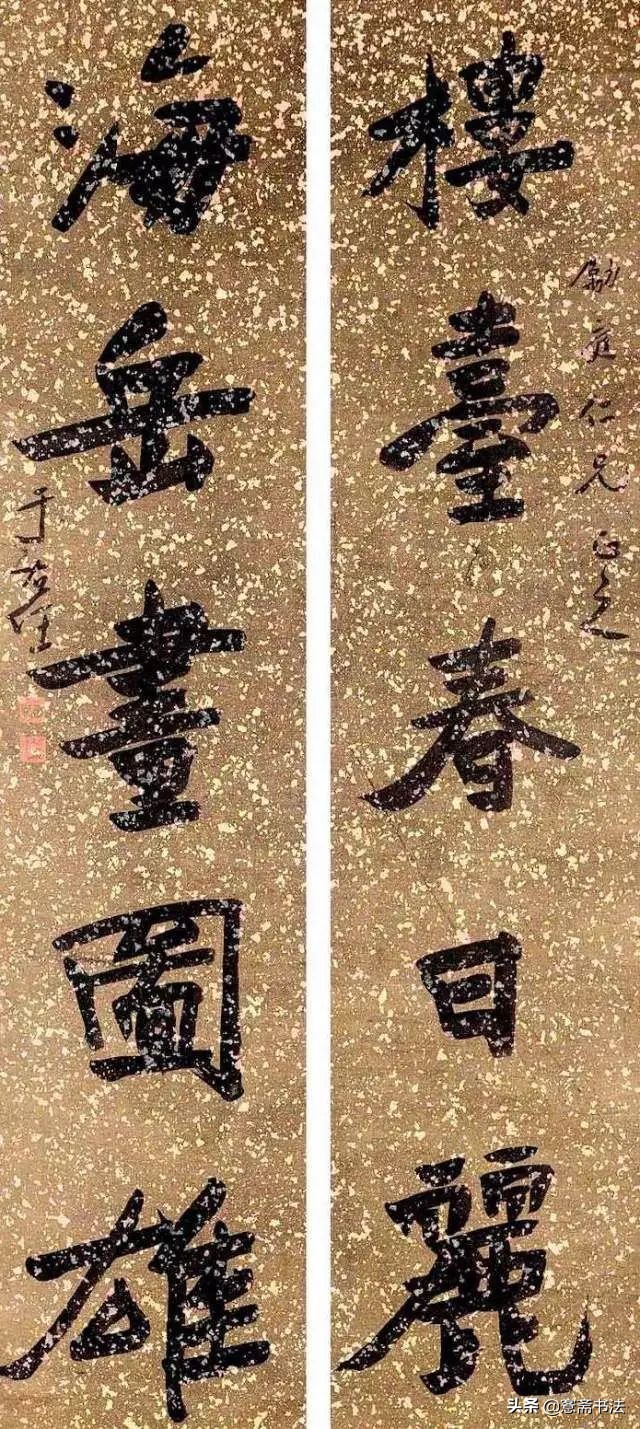 樓臺春日麗
勵庭仁兄正之
海岳畫圖雄
于右任
头条@愙斋书法